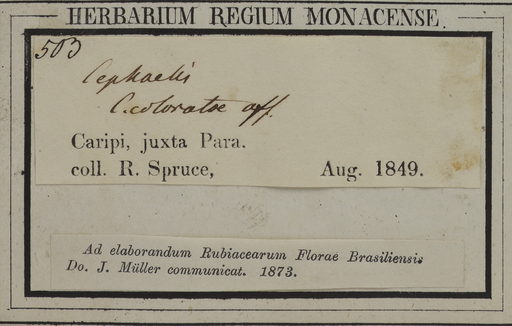 HERBARIUM REGIUM MONACENSE.
503
Cephaelis
C. coloratae aff.
Caripi, juxta Para.
coll. R. Spruce, Aug. 1849.
Ad elaborandum Rubiacearum Florae Brasiliensis
Do. J. Müller communicat. 1873.